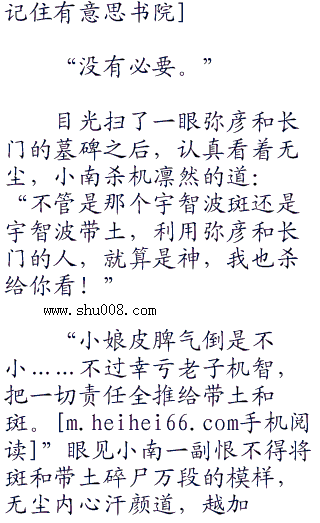 记住有意思书院]
“没有必要。”
目光扫了一眼弥彦和长
门的墓碑之后，认真看着无
尘，小南杀机凛然的道：
“不管是那个宇智波斑还是
宇智波带土，利用弥彦和长
门的人，就算是神，我也杀
给你看！”
www.shu008.com
“小娘皮脾气倒是不
小……不过幸亏老子机智，
把一切责任全推给带土和
斑。[m.heihei66.com手机阅
读]”眼见小南一副恨不得将
斑和带土碎尸万段的模样，
无尘内心汗颜道，越加